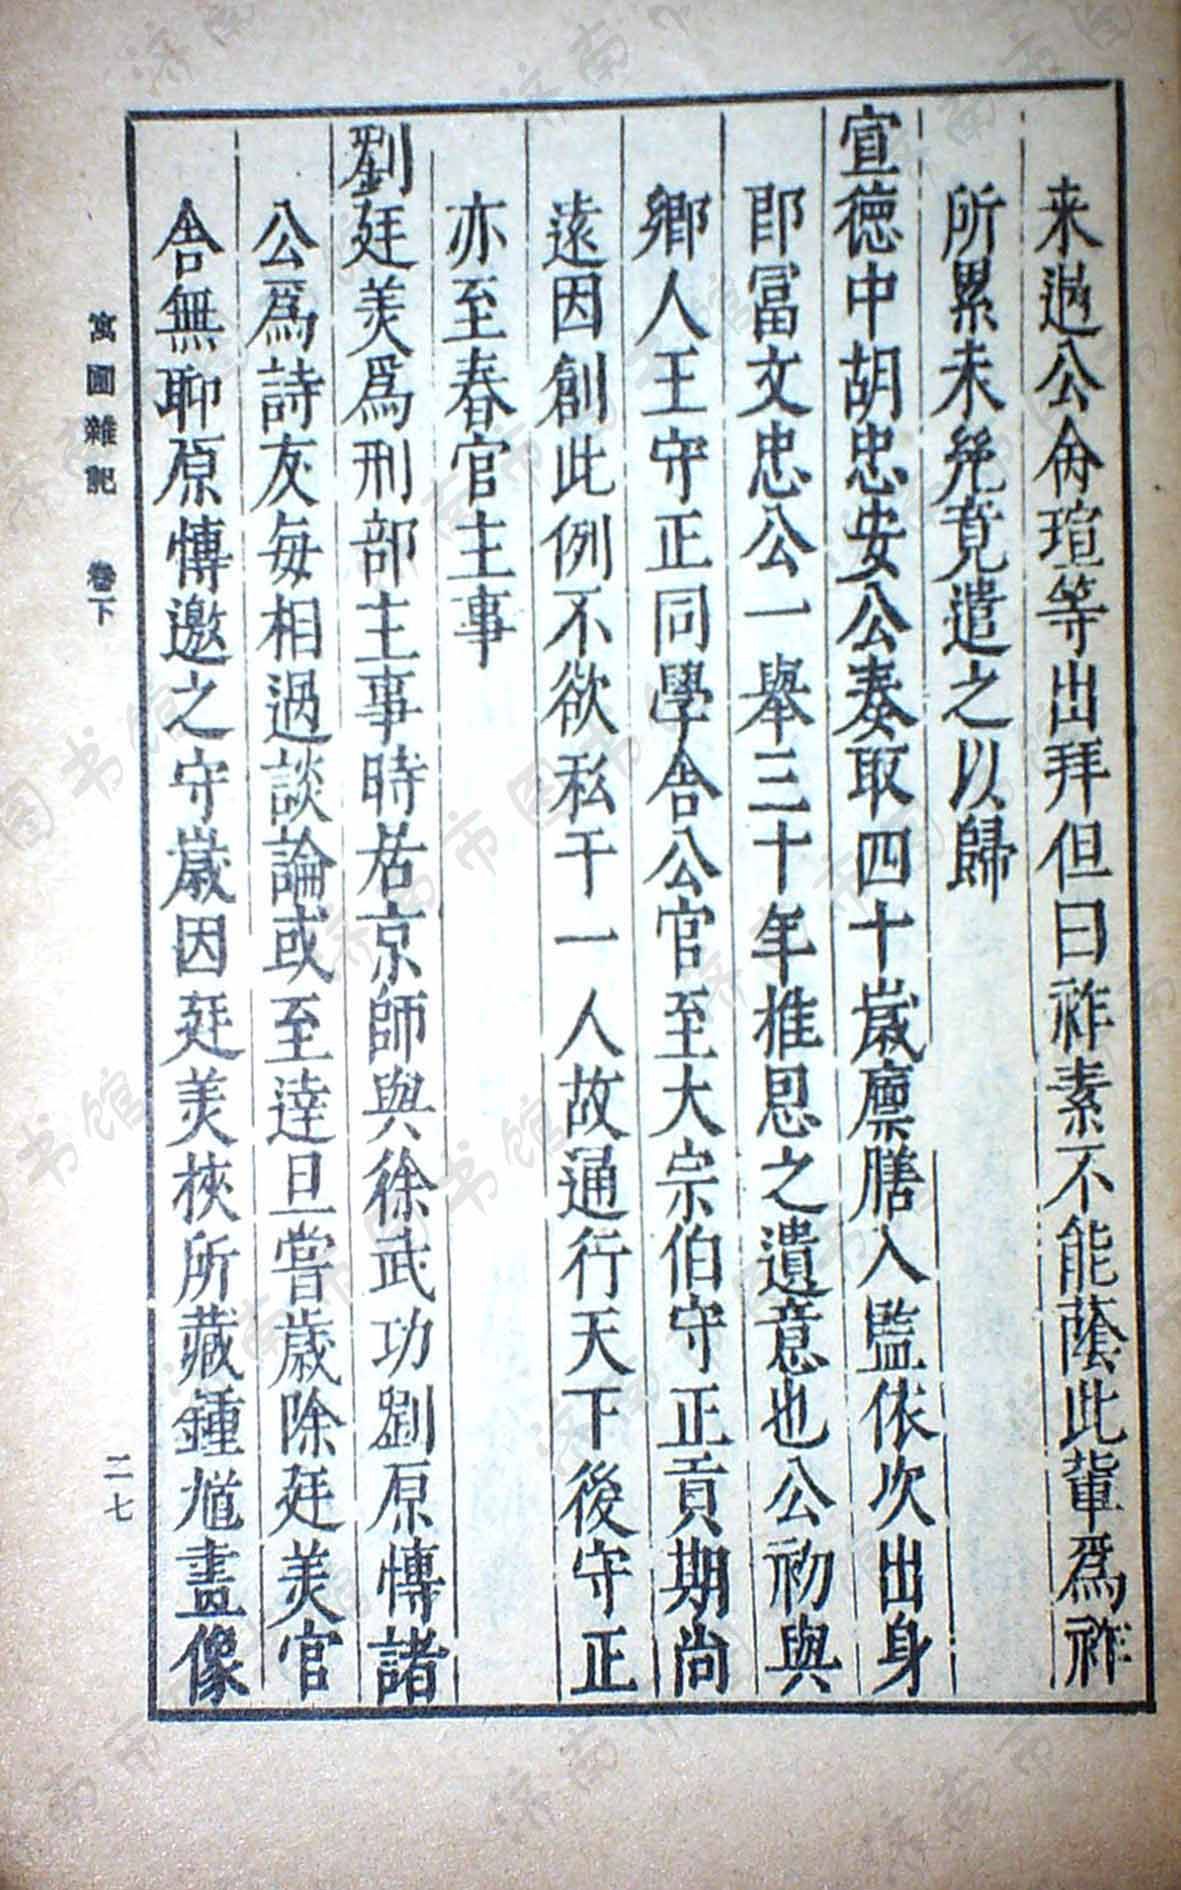 来過公命瑄等出拜但曰祚素不能蔭此輩爲祚
所累未㝃竟遣之以歸
宣德中胡忠安公奏取四十歲廪膳入監依次出身
即富文忠公一舉三十年推恩之遺意也公初與
鄉人王守正同學舍公官至大宗伯守正貢期尚
遠因創此例不欲私干一人故通行天下後守正
亦至春官主事
劉廷美爲刑部主事時居京師與徐武功劉原慱諸
公爲詩友每相過談論或至達旦嘗歲除廷美官
舍無聊原慱邀之守歲因廷美挾所藏鍾馗畫像
寓圃雜記 卷下
二七